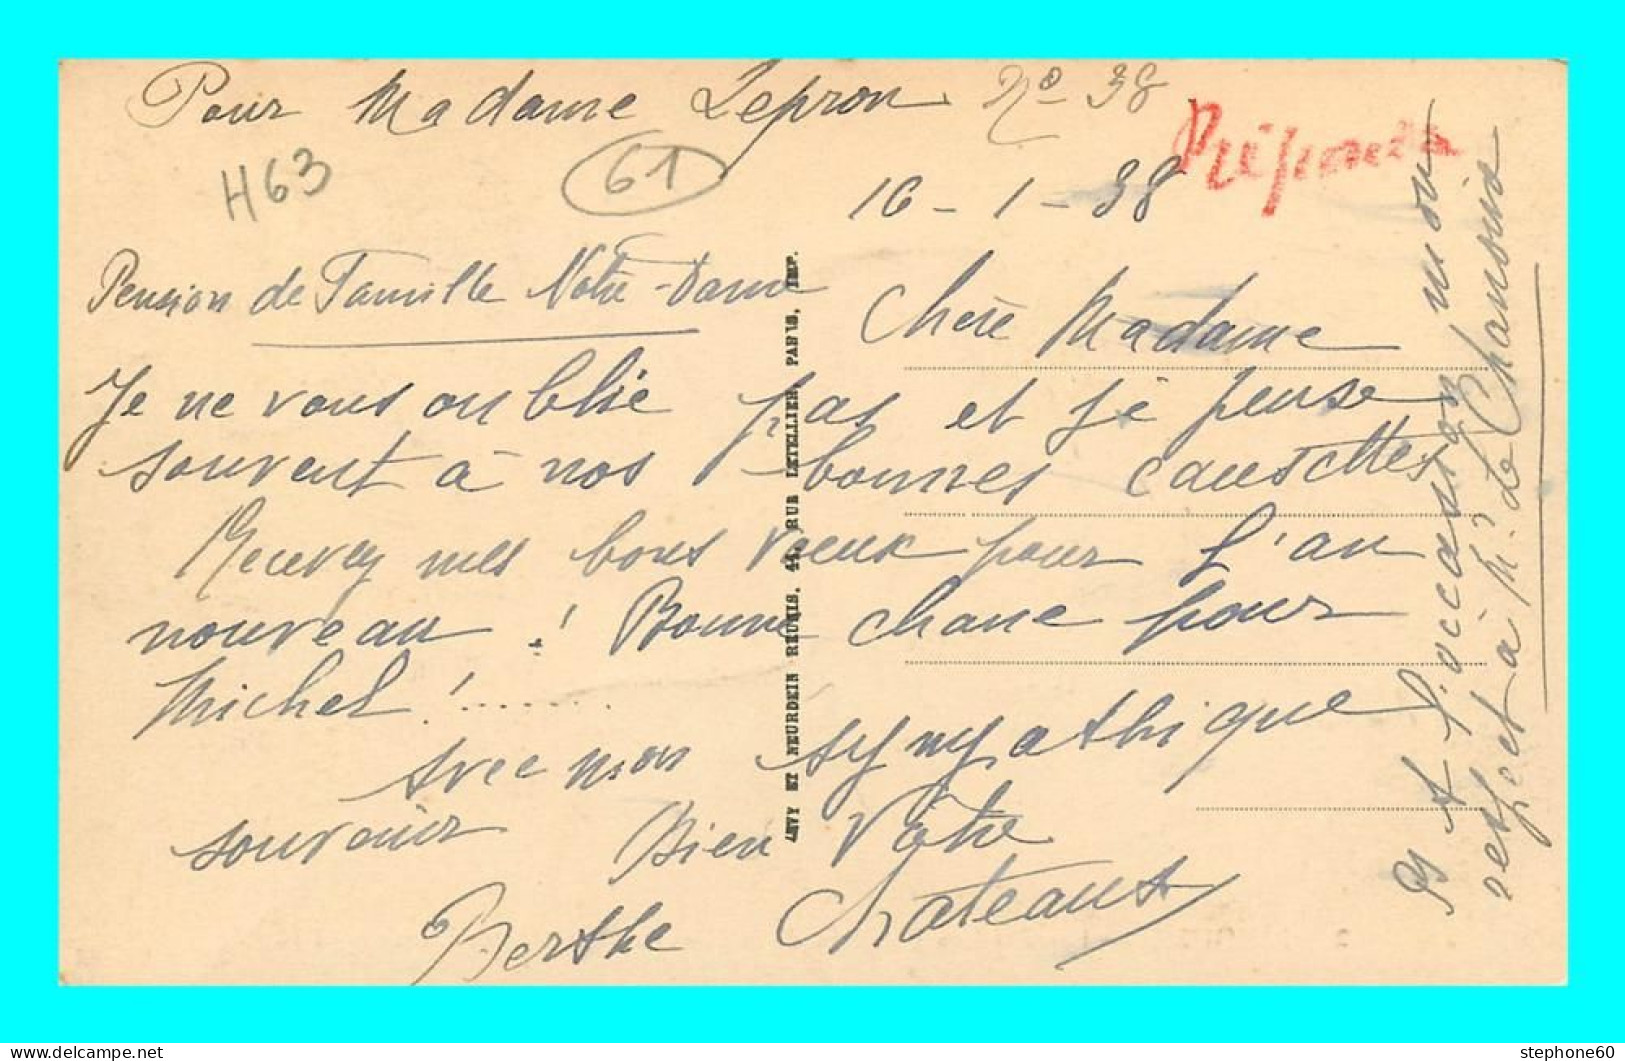 Pour Madame Lepron No 38
H63
61
16 - 1 - 38
Pension de Famille Notre-Dame
Chère Madame
Je ne vous oublie pas et je pense
souvent à nos bonnes causettes
Recevez mes bons vœux pour l'an
nouveau ! Bonne chance pour
Michel !.......
Avec mon sympathique
souvenir Bien Vôtre
Berthe Chateaux
PS A l'occasion mon
respect à M. de Chansnis
LEVY ET NEURDEIN REUNIS, 44, RUE LETELLIER, PARIS, IMP.
stephone60